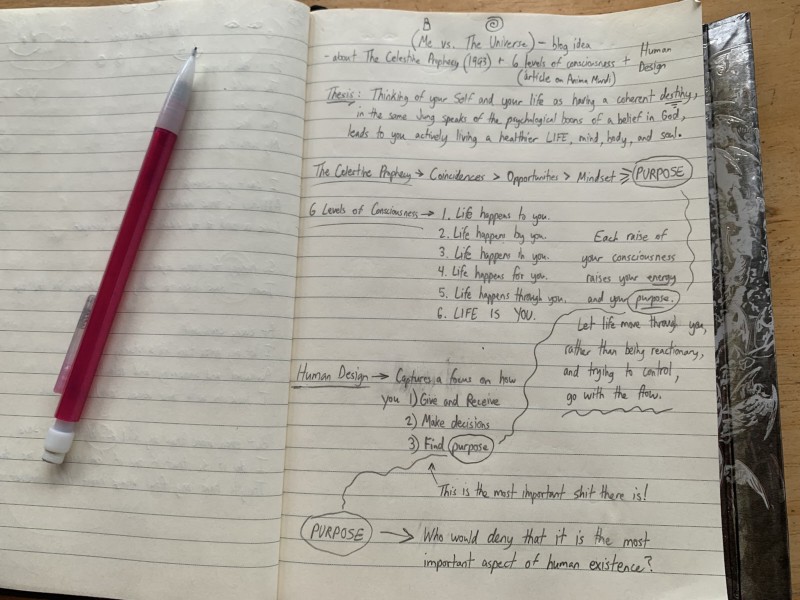 B
(Me vs. The Universe) - blog idea
- about The Celestine Prophecy (1993) + 6 levels of consciousness + Human Design
(article on Anima Mundi)
Thesis: Thinking of your Self and your life as having a coherent destiny,
in the same Jung speaks of the psychological boons of a belief in God,
leads to you actively living a healthier LIFE, mind, body, and soul.
The Celestine Prophecy → Coincidences > Opportunities > Mindset ⇒ PURPOSE
6 Levels of Consciousness → 1. Life happens to you.
2. Life happens by you.
3. Life happens in you.
4. Life happens for you.
5. Life happens through you.
6. LIFE IS YOU.
Each raise of
your consciousness
raises your energy
and your purpose.
Let life move through you,
rather than being reactionary,
and trying to control,
go with the flow.
Human Design → Captures a focus on how
you 1) Give and Receive
2) Make decisions
3) Find purpose
This is the most important shit there is!
PURPOSE → Who would deny that it is the most
important aspect of human existence?